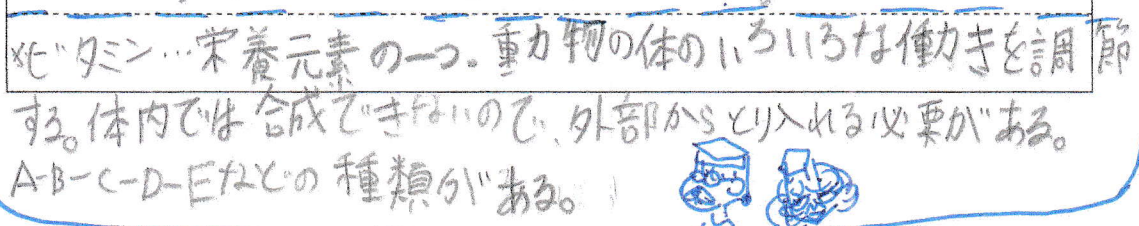 *ビタミン…栄養元素の一つ。動物の体のいろいろな働きを調節
する。体内では合成できないので、外部からとり入れる必要がある。
A-B-C-D-Eなどの種類がある。